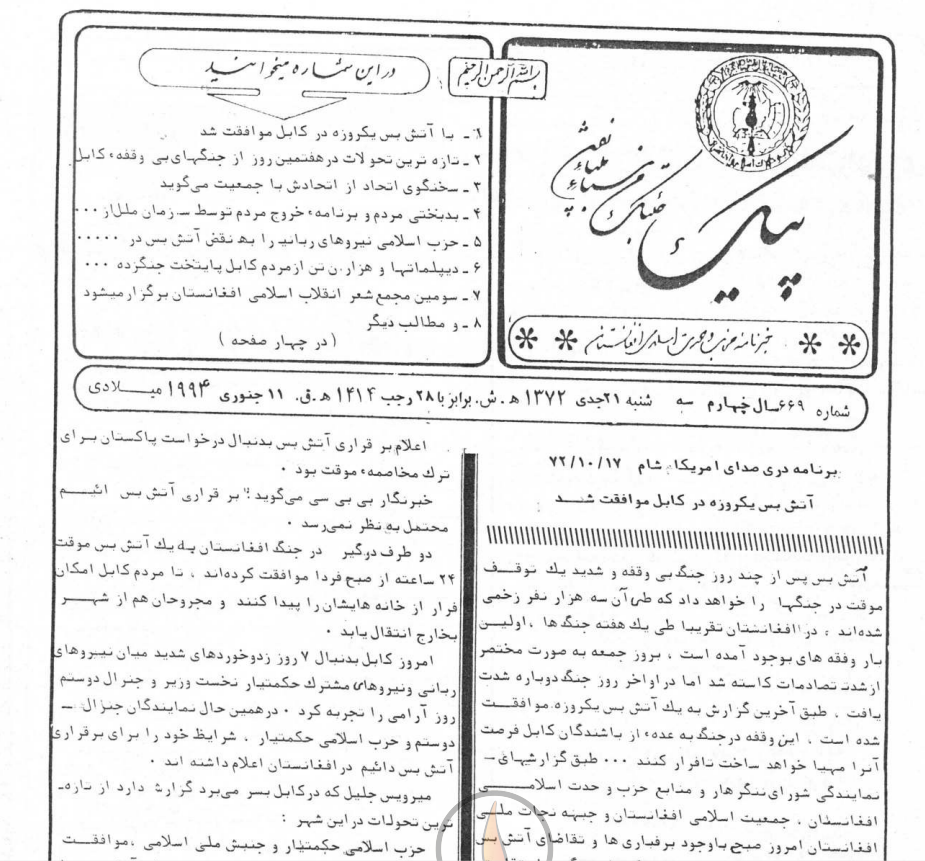 بسم الله الرحمن الرحیم
پیک
خبرنامه حزب وحدت اسلامی افغانستان
در این شماره میخوانید
۱ ـ با آتش بس یکروزه در کابل موافقت شد
۲ ـ تازه ترین تحولات در هفتمین روز از جنگهای بی وقفهء کابل
۳ ـ سخنگوی اتحاد از اتحادش با جمعیت می‌گوید
۴ ـ بدبختی مردم و برنامهء خروج مردم توسط سازمان ملل از ...
۵ ـ حزب اسلامی نیروهای ربانی را به نقض آتش بس در .....
۶ ـ دیپلماتها و هزاران تن از مردم کابل پایتخت جنگزده ...
۷ ـ سومین مجمع شعر انقلاب اسلامی افغانستان برگزار میشود
۸ ـ و مطالب دیگر
( در چهار صفحه )
شماره ۶۶۹ سال چهارم سه شنبه ۲۱ جدی ۱۳۷۲ ه‍.ش. برابر با ۲۸ رجب ۱۴۱۴ ه‍.ق. ۱۱ جنوری ۱۹۹۴ میلادی
برنامه دری صدای امریکا، شام ۷۲/۱۰/۱۷
آتش بس یکروزه در کابل موافقت شد
آتش بس پس از چند روز جنگ بی وقفه و شدید یك توقف
موقت در جنگها را خواهد داد که طی آن سه هزار نفر زخمی
شده‌اند ، در افغانستان تقریبا طی یك هفته جنگ ها ، اولین
بار وقفه های بوجود آمده است ، بروز جمعه به صورت مختصر
از شدت تصادمات کاسته شد اما در اواخر روز جنگ دوباره شدت
یافت ، طبق آخرین گزارش به یك آتش بس یکروزه موافقت
شده است ، این وقفه در جنگ به عدهء از باشندگان کابل فرصت
آنرا مهیا خواهد ساخت تا فرار کنند ... طبق گزارشهای ـ
نمایندگی شورای ننگرهار و منابع حزب و حدت اسلامی
افغانستان ، جمعیت اسلامی افغانستان و جبهه نجات ملی
افغانستان امروز صبح باوجود برفباری ها و تقاضای آتش بس
اعلام بر قراری آتش بس بدنبال درخواست پاکستان برای
ترك مخاصمهء موقت بود .
خبرنگار بی بی سی می‌گوید : بر قراری آتش بس ائیم
محتمل به نظر نمی‌رسد .
دو طرف درگیر در جنگ افغانستان به یك آتش بس موقت
۲۴ ساعته از صبح فردا موافقت کرده‌اند ، تا مردم کابل امکان
فرار از خانه هایشان را پیدا کنند و مجروحان هم از شهر
بخارج انتقال یابد .
امروز کابل بدنبال ۷ روز زدوخوردهای شدید میان نیروهای
ربانی ونیروهای مشترك حکمتیار نخست وزیر و جنرال دوستم
روز آرامی را تجربه کرد . درهمین حال نمایندگان جنرال ـ
دوستم و حزب اسلامی حکمتیار ، شرایظ خود را برای برقراری
آتش بس دائیم در افغانستان اعلام داشته اند .
میرویس جلیل که در کابل بسر می‌برد گزارش دارد از تازه‌ـ
ترین تحولات در این شهر :
حزب اسلامی حکمتیار و جنبش ملی اسلامی ، موافقت